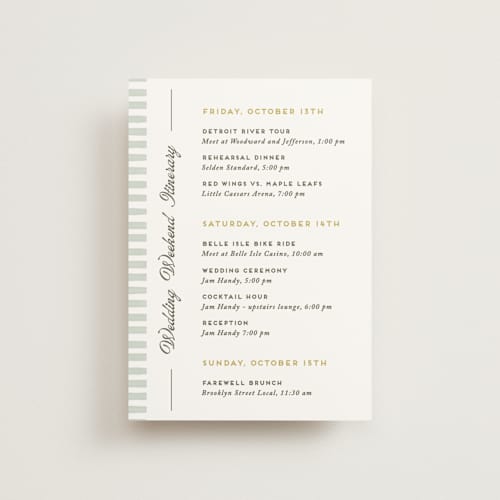 Wedding Weekend Itinerary
FRIDAY, OCTOBER 13TH
DETROIT RIVER TOUR
Meet at Woodward and Jefferson, 1:00 pm
REHEARSAL DINNER
Selden Standard, 5:00 pm
RED WINGS VS. MAPLE LEAFS
Little Caesars Arena, 7:00 pm
SATURDAY, OCTOBER 14TH
BELLE ISLE BIKE RIDE
Meet at Belle Isle Casino, 10:00 am
WEDDING CEREMONY
Jam Handy, 5:00 pm
COCKTAIL HOUR
Jam Handy - upstairs lounge, 6:00 pm
RECEPTION
Jam Handy 7:00 pm
SUNDAY, OCTOBER 15TH
FAREWELL BRUNCH
Brooklyn Street Local, 11:30 am